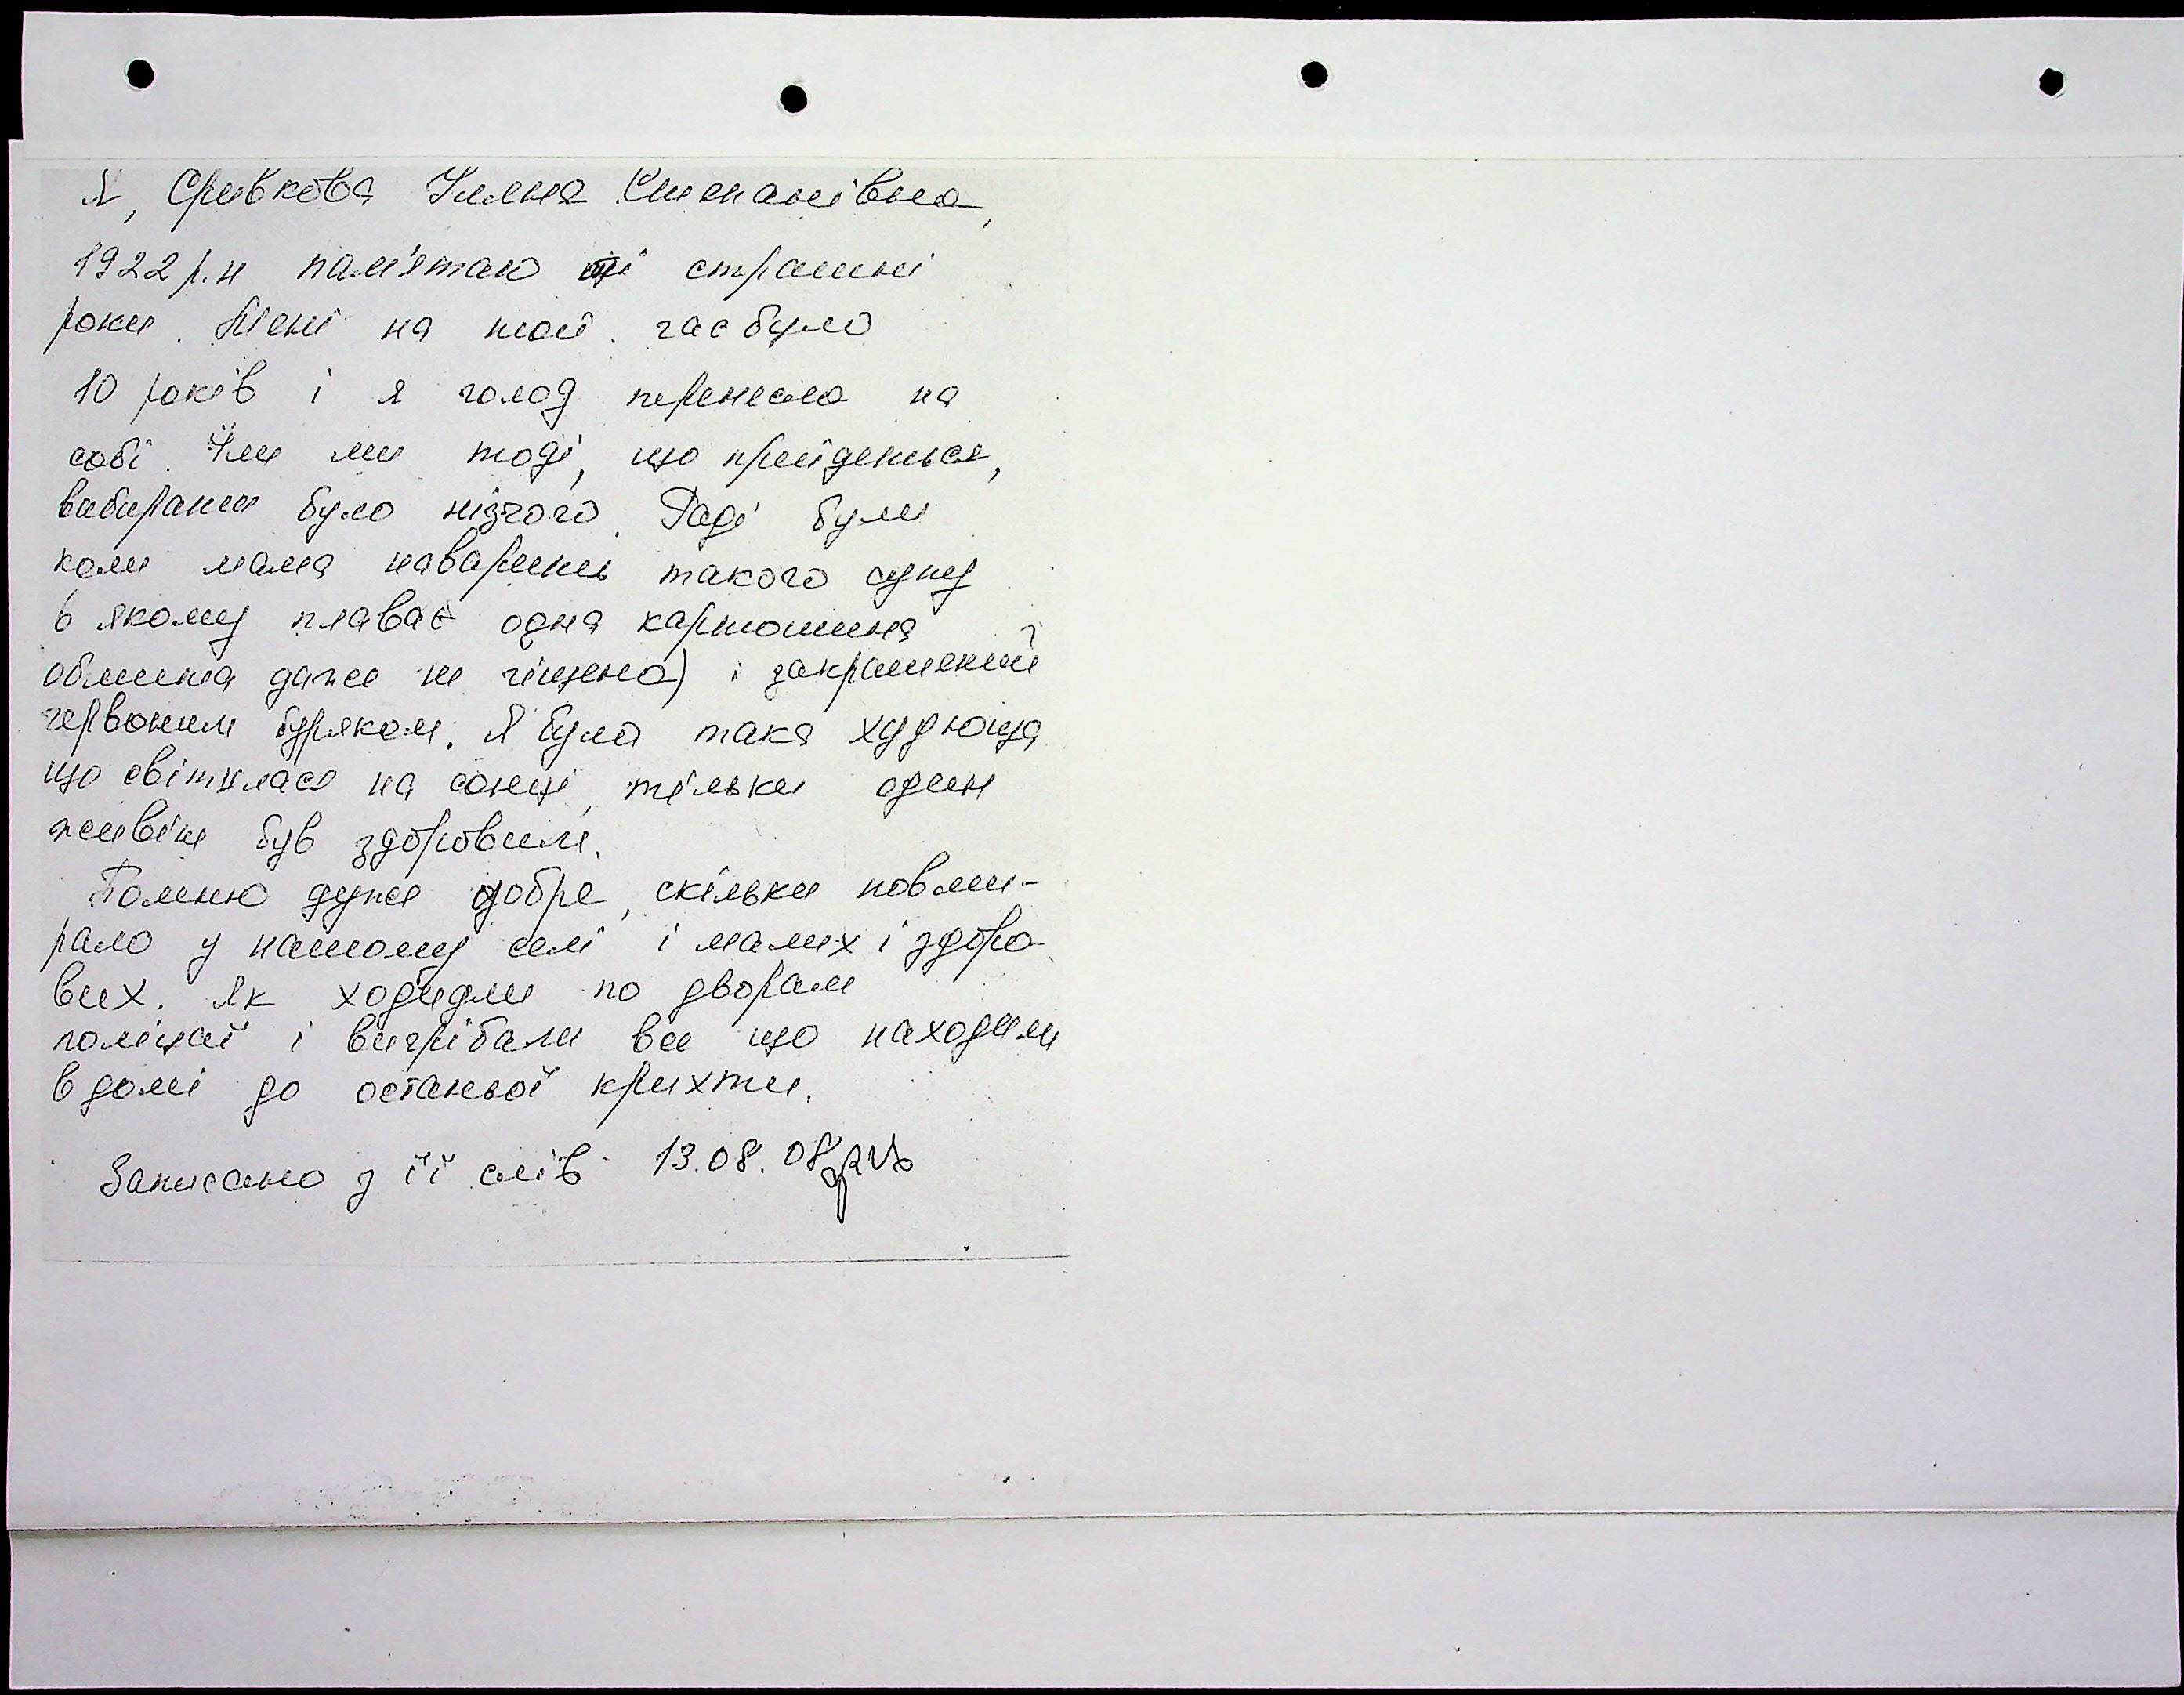 Я, Сривкова Уляна Степанівна,
1922 р.н пам'ятаю ті страшні
роки. Мені на той час було
10 років і я голод перенесла на
собі. Їли ми тоді, що прийдеться,
вибирати було нізчого. Раді були
коли мама наварить такого супу
в якому плаває одна картошина
облшина даже не чіщена) і закрашений
червоним буряком. Я була така худюща
що світилася на сонці, тільки один
живіт був здоровим.
Помню дуже добре, скільки повми-
рало у нашому селі і малих і здоро-
вих. Як ходидли по дворам
поліцаї і вигрібали все що находили
в домі до останьої крихти.
Записано з її слів 13.08.08